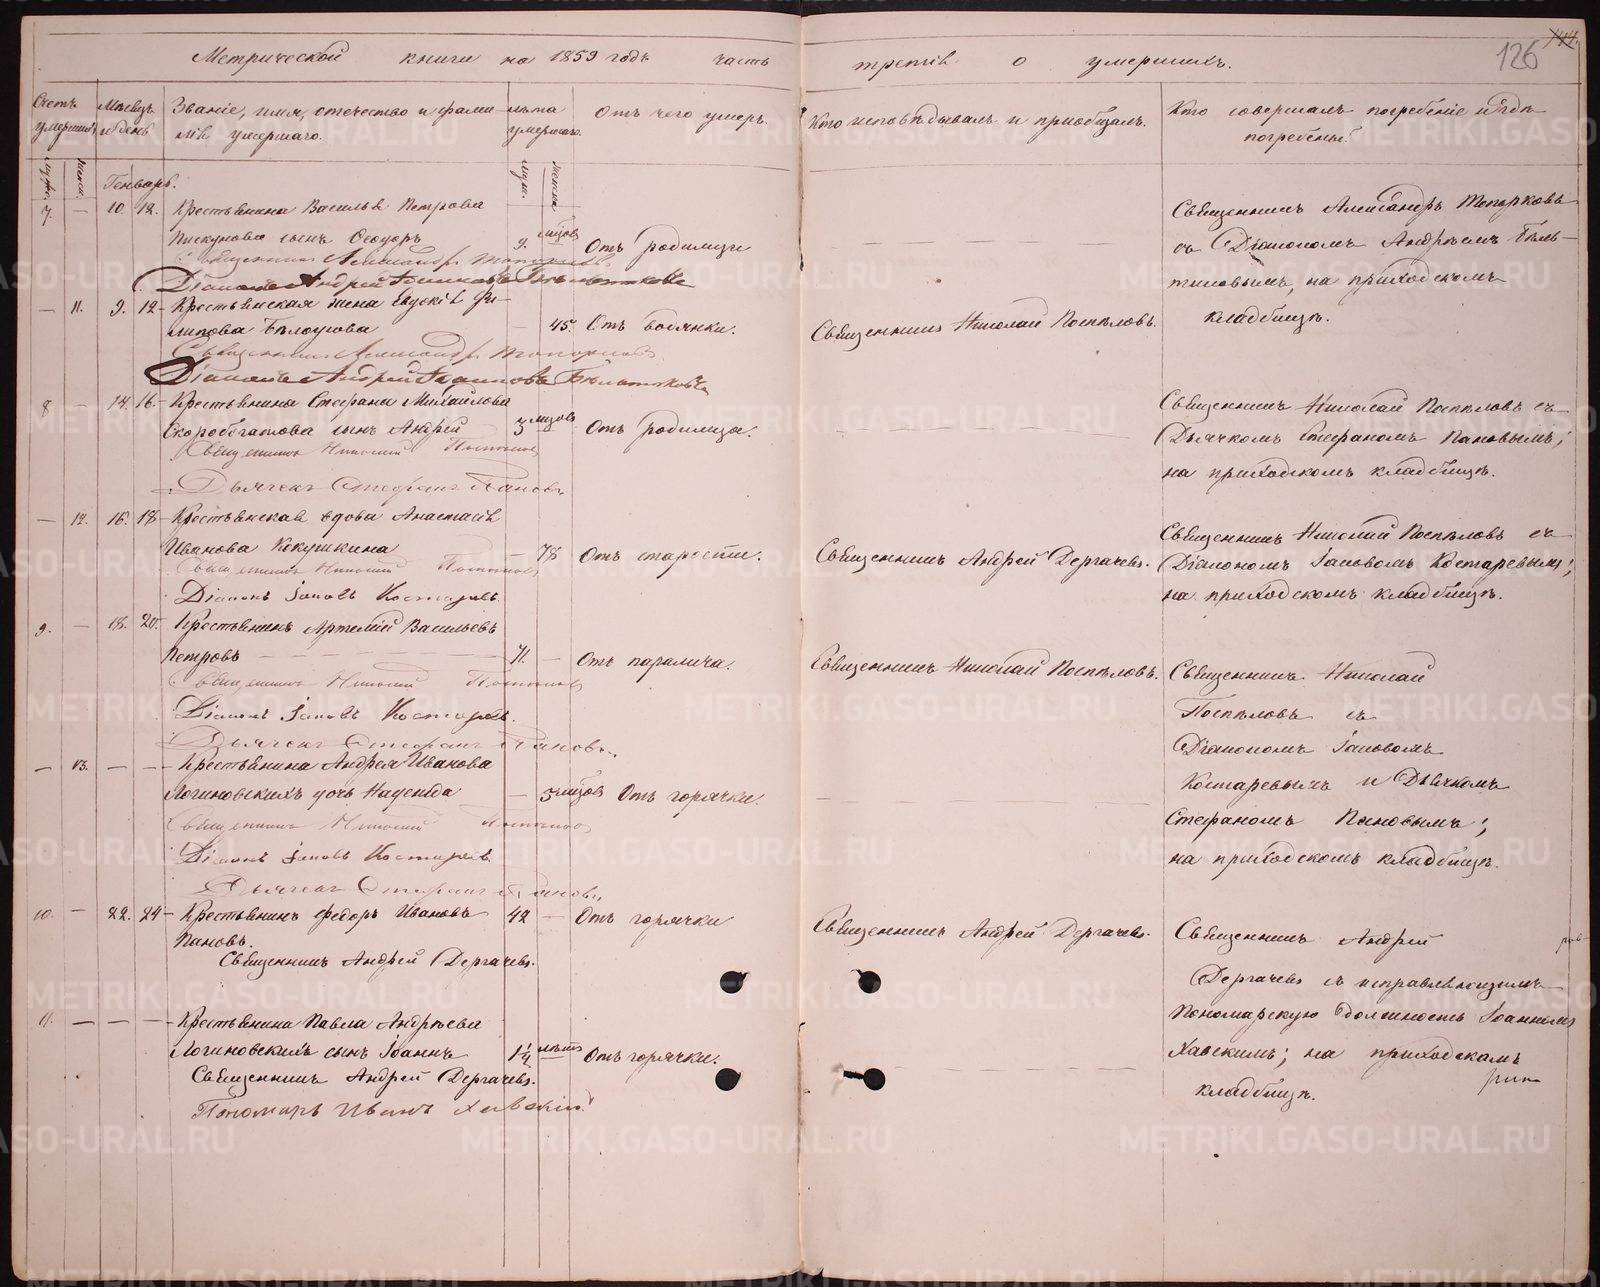 Метрической книги на 1859 годъ часть третія о умершихъ.
126
Счетъ умершихъ
Мѣсяцъ и день
Званіе, имя, отчество и фами-
лія умершаго.
лѣта
умершаго.
Отъ чего умеръ.
Кто исповѣдывалъ и пріобщалъ.
Кто совершалъ погребеніе и гдѣ
погребены.
муж.
женск.
муж.
женска
Генварь.
7. — 10. 12. Крестьянина Василья Петрова
Пискунова сынъ Ѳеодоръ 9. мѣсяцъ Отъ родимца
Священникъ Александръ Топорковъ
Діаконъ Андрей
Священникъ Александръ Топорковъ
съ Діакономъ Андреемъ Бѣль-
тиковымъ, на приходскомъ
кладбищѣ.
— 11. 9. 12. Крестьянская жена Евдокія Фи-
липова Бѣлоусова — 45. Отъ водянки. Священникъ Николай Поспѣловъ.
Священникъ Александръ Топорковъ
Діаконъ Андрей
8 — 14. 16. Крестьянина Стефана Михайлова
Скоробогатова сынъ Андрей 3 мѣсяцъ Отъ родимца.
Священникъ Николай Поспѣловъ
Дьячекъ Стефанъ Пановъ
Священникъ Николай Поспѣловъ съ
Дьячкомъ Стефаномъ Пановымъ;
на приходскомъ кладбищѣ.
— 12. 16. 18 Крестьянская вдова Анастасія
Иванова Кокушкина — 78 Отъ старости. Священникъ Андрей Дергачевъ.
Священникъ Николай Поспѣловъ
Діаконъ Іаковъ Костаревъ.
Священникъ Николай Поспѣловъ съ
Діакономъ Іаковомъ Костаревымъ;
на приходскомъ кладбищѣ.
9. — 18. 20. Крестьянинъ Артемій Васильевъ
Петровъ 71. — Отъ паралича. Священникъ Николай Поспѣловъ.
Священникъ Николай Поспѣловъ
Діаконъ Іаковъ Костаревъ.
Дьячекъ Стефанъ Пановъ.
— 13. — — Крестьянина Андрея Иванова
Логиновскихъ дочь Надежда — 3 мѣсяцъ Отъ горячки.
Священникъ Николай Поспѣловъ
Діаконъ Іаковъ Костаревъ
Дьячекъ Стефанъ Пановъ.
Священникъ Николай
Поспѣловъ съ
Діакономъ Іаковомъ
Костаревымъ и Дьячкомъ
Стефаномъ Пановымъ;
на приходскомъ кладбищѣ.
10. — 22. 24 Крестьянинъ Федоръ Ивановъ 42 — Отъ горячки Священникъ Андрей Дергачевъ.
Пановъ.
Священникъ Андрей Дергачевъ.
11. — — — Крестьянина Павла Андреева
Логиновскихъ сынъ Іоаннъ 1¼ лѣтъ Отъ горячки.
Священникъ Андрей Дергачевъ.
Пономарь Иванъ Хавскій
Священникъ Андрей
Дергачевъ съ исправляющимъ
Пономарскую должность Іоанномъ
Хавскимъ; на приходскомъ
кладбищѣ.
METRIKI.GASO-URAL.RU